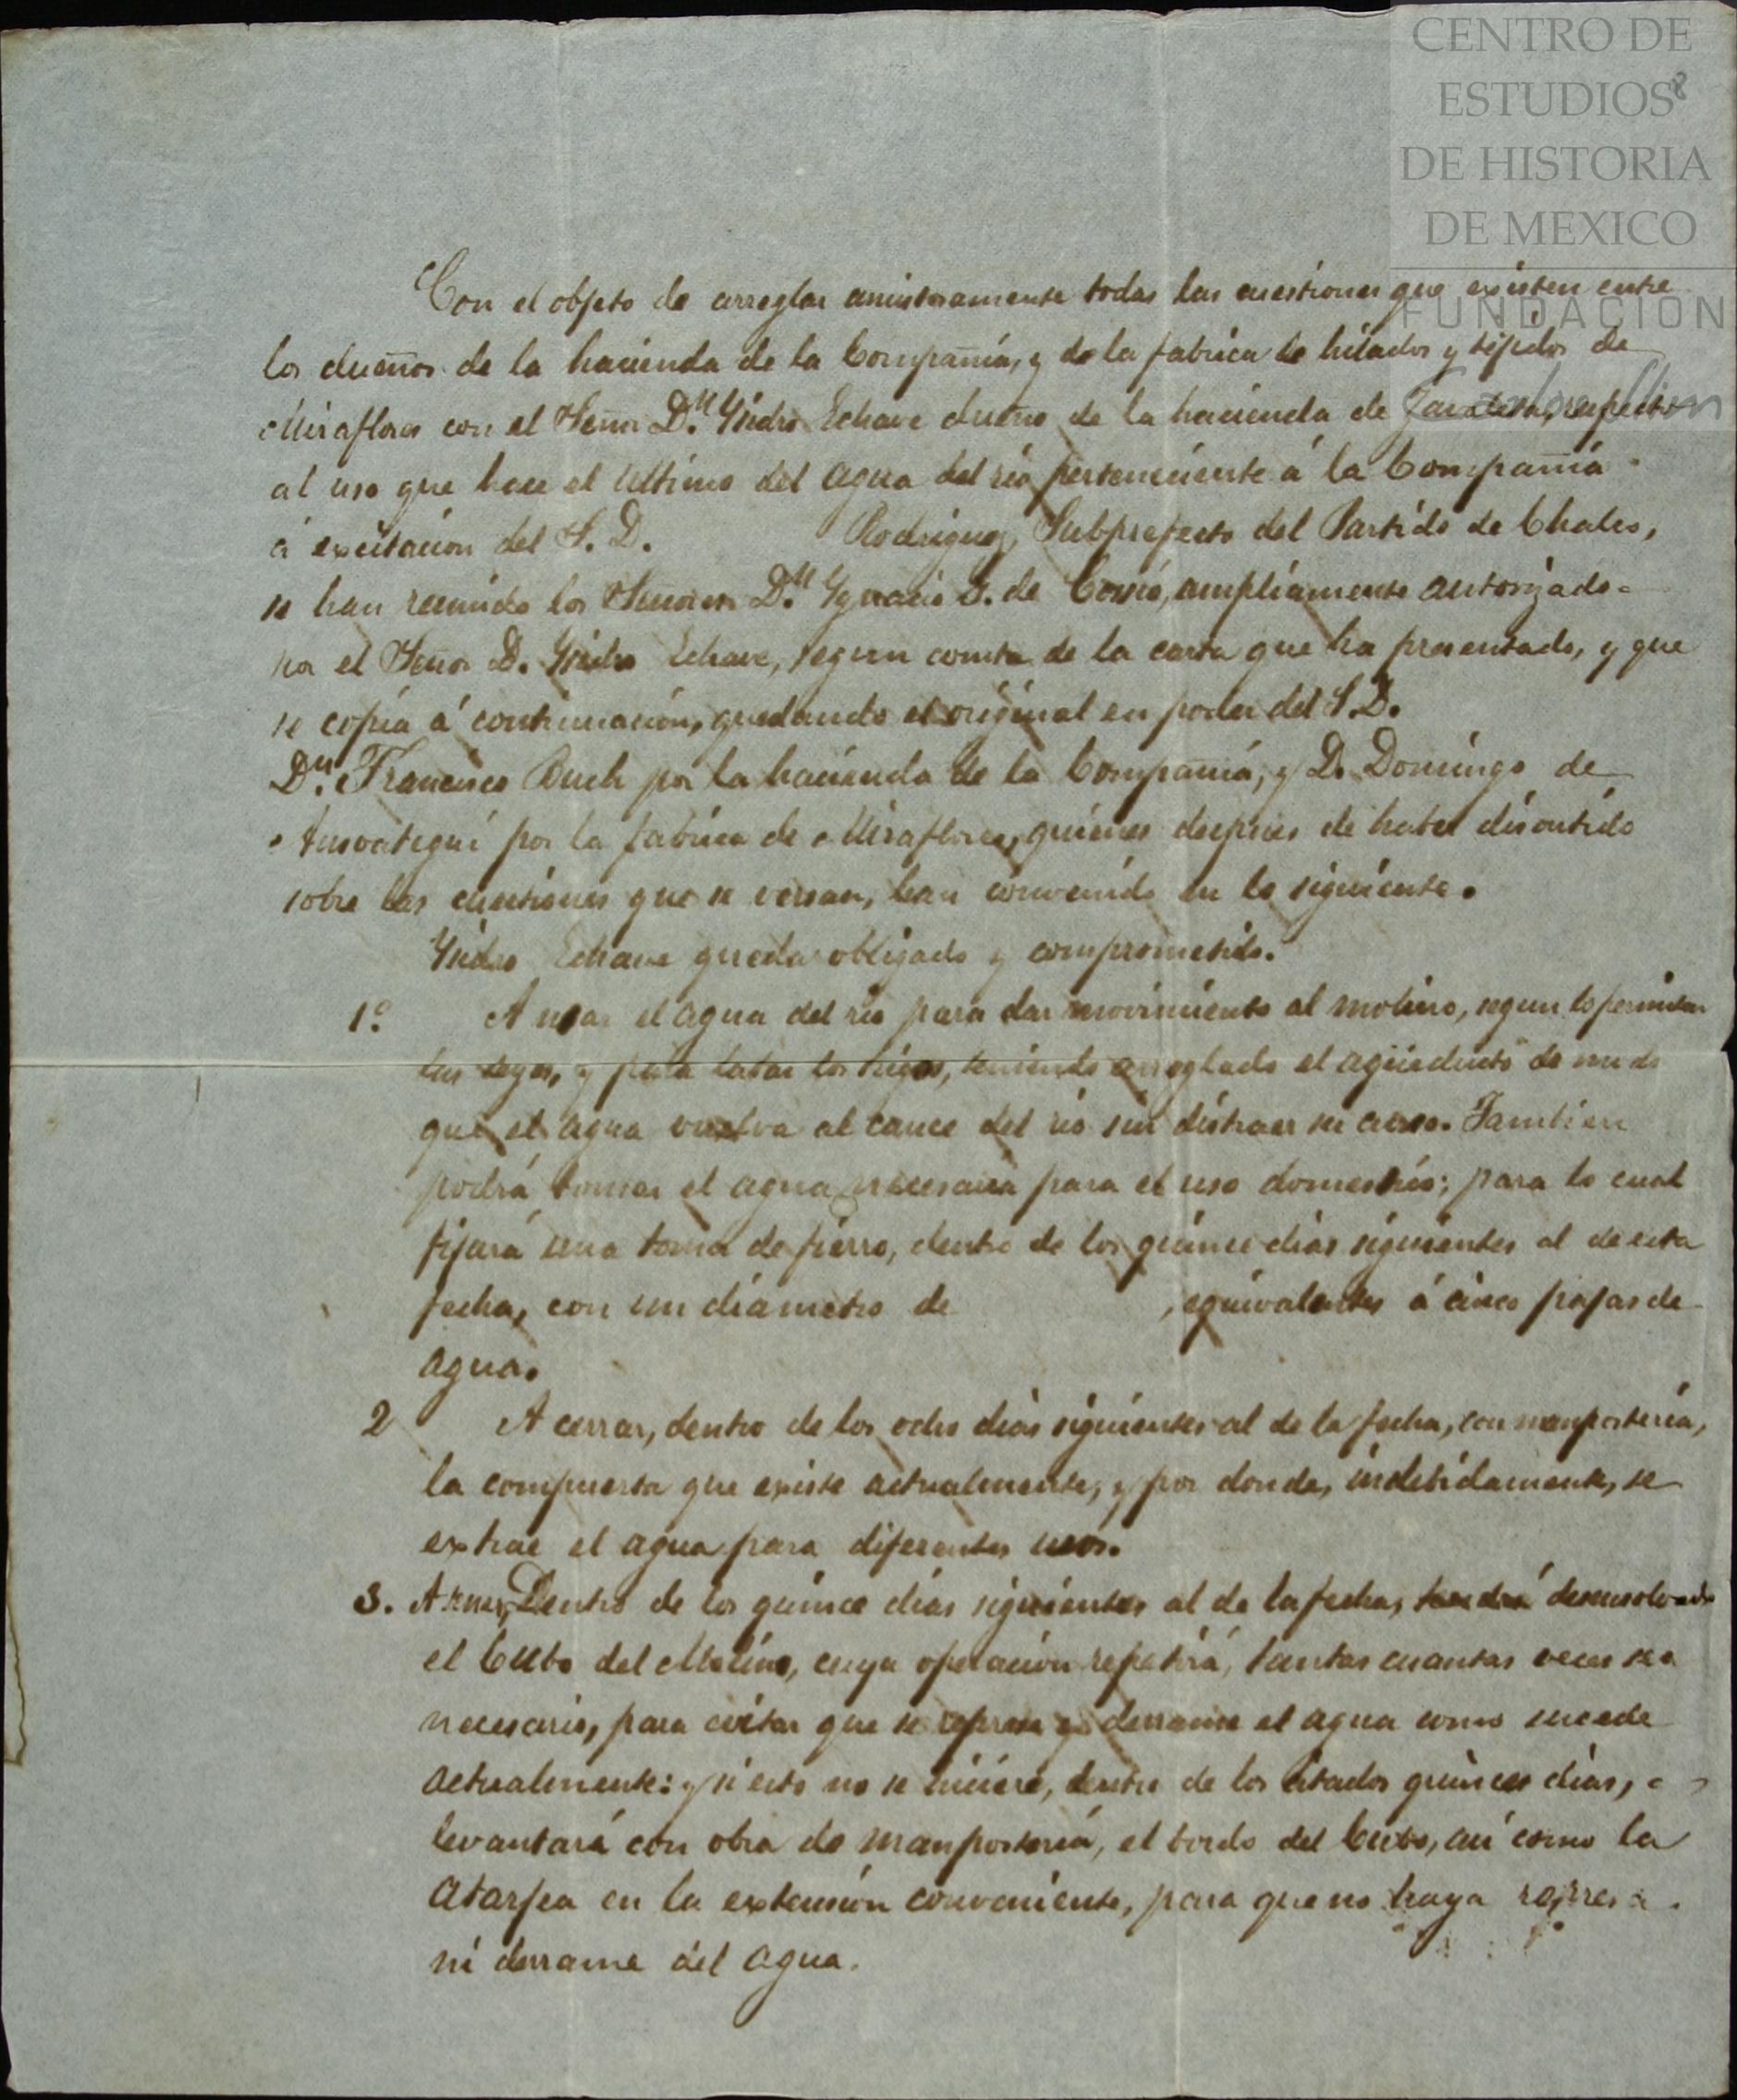 CENTRO DE
ESTUDIOS
DE HISTORIA
DE MEXICO
FUNDACION
Con el objeto de arreglar amistosamente todas las cuestiones que existen entre
los dueños de la hacienda de la Compañía, y de la fabrica de hilados y tejidos de
Miraflores con el Señor D.n Ysidro Echave dueño de la hacienda de respecto
al uso que hace el ultimo del agua del río perteneciente á la Compañía
á exitacion del S. D. Rodriguez, Subprefecto del Partido de Chalco,
se han reunido los Señores D.n Ygnacio de Cosio, ampliamente autorizado
por el Señor D. Ysidro Echave, segun consta de la carta que ha presentado, y que
se copia á continuación, quedando el original en poder del S. D.
D.n Francisco Buch por la hacienda de la Compañía, y D. Domingo de
Ansoategui por la fabrica de Miraflores, quienes despues de haber discutido
sobre las cuestiones que se versan, han convenido en lo siguiente.
Ysidro Echave queda obligado y comprometido.
1.o A usar el agua del río para dar movimiento al molino, segun lo permitan
las leyes, y para labar los trigos, teniendo arreglado el agüeducto de modo
que el agua vuelva al cauce del río sin distraer su curso. Tambien
podrá tomar el agua necesaria para el uso domestico; para lo cual
fijará una toma de fierro, dentro de los quince dias siguientes al de esta
fecha, con un diámetro de , equivalentes á cinco pajas de
agua.
2 A cerrar, dentro de los ocho dias siguientes al de la fecha, con mampostería,
la compuerta que existe actualmente, y por donde, indebidamente, se
extrae el agua para diferentes usos.
3. A tener, Dentro de los quince dias siguientes al de la fecha, tendrá desensolvado
el Cubo del Molino, cuya operación repetirá, tantas cuantas veces sea
necesario, para evitar que se represe y derrame el agua como sucede
actualmente: y si esto no se hiciere, dentro de los citados quince dias,
levantará con obra de mampostería, el bordo del Cubo, así como la
atarjea en la extensión conveniente, para que no haya represa
ni derrame del agua.